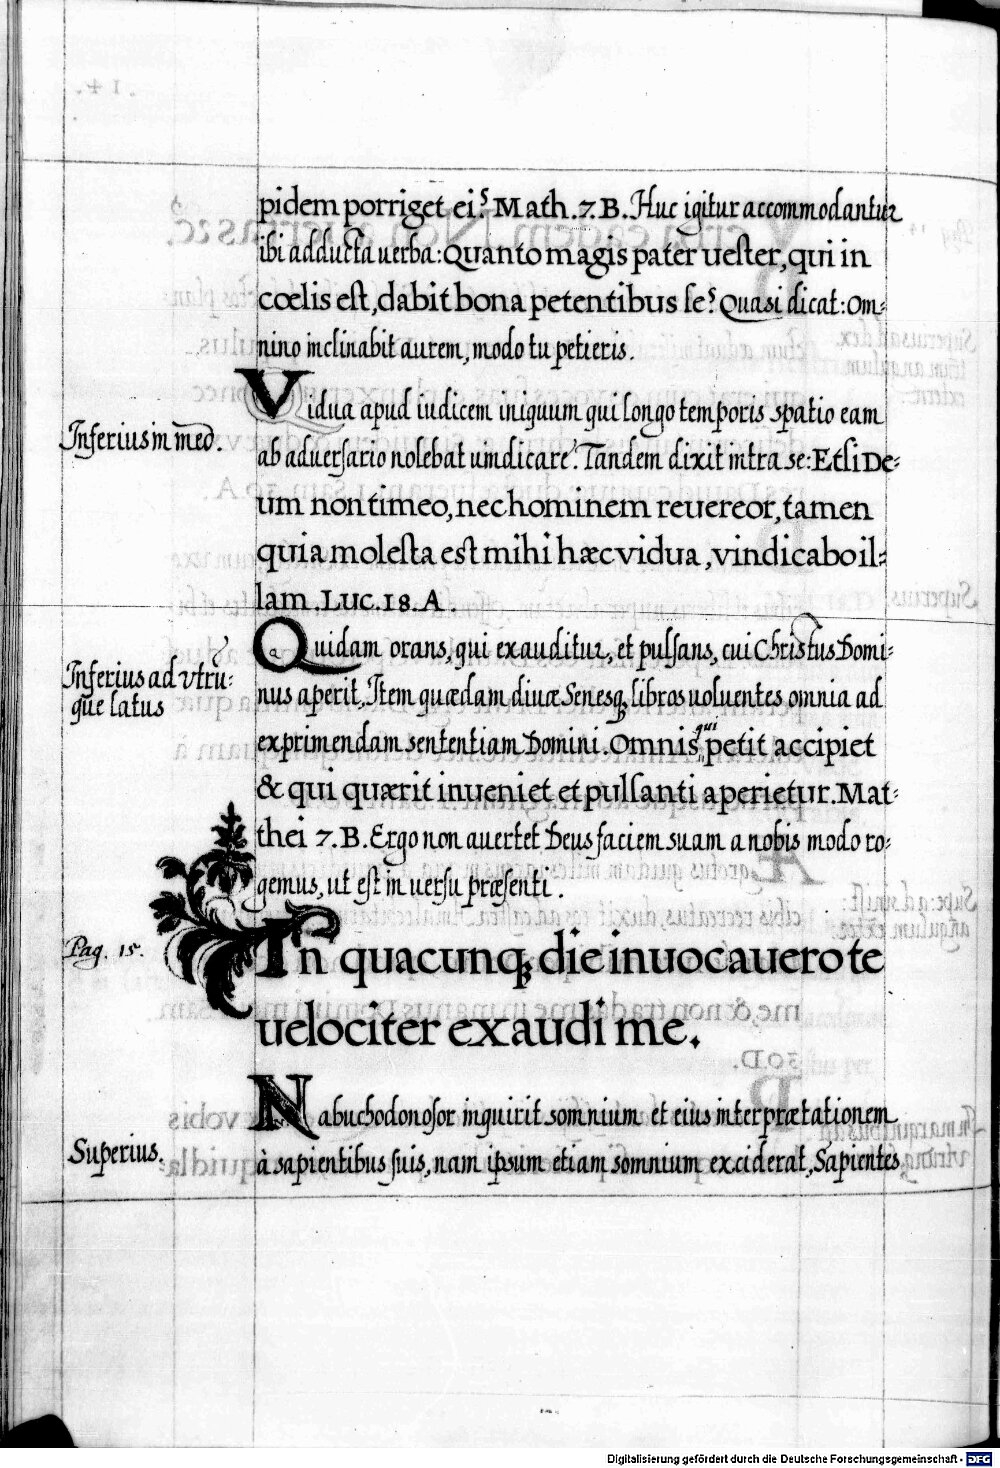 pidem porriget ei? Math. 7. B. Huc igitur accommodantur
ibi adducta uerba: Quanto magis pater uester, qui in
cœlis est, dabit bona petentibus se? Quasi dicat: Om-
nino inclinabit aurem, modo tu petieris.
Vidua apud iudicem iniquum qui longo temporis spatio eam
Inferius in med.
ab aduersario nolebat uindicare. Tandem dixit intra se: Etsi De-
um non timeo, nec hominem reuereor, tamen
quia molesta est mihi hæc vidua, vindicabo il-
lam. Luc. 18. A.
Quidam orans, qui exauditur, et pulsans, cui Christus Domi-
Inferius ad vtru-
que latus
nus aperit, Item quædam diuæ Senesq3 libros uoluentes omnia ad
exprimendam sententiam Domini. Omnis qui petit accipiet
& qui quærit inueniet et pulsanti aperietur. Mat-
thei 7. B. Ergo non auertet Deus faciem suam a nobis modo ro-
gemus, ut est in uersu præsenti.
Pag. 15.
In quacunq3 die inuocauero te
uelociter exaudi me.
Nabuchodonosor inquirit somnium et eius interprætationem
Superius.
à sapientibus suis, nam ipsum etiam somnium exciderat, Sapientes
Digitalisierung gefördert durch die Deutsche Forschungsgemeinschaft - DFG